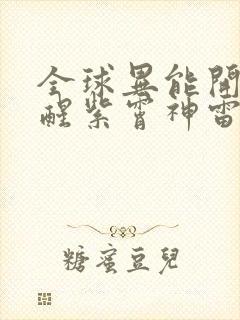 全球異能開
醒紫霄神雷
糖蜜豆兒